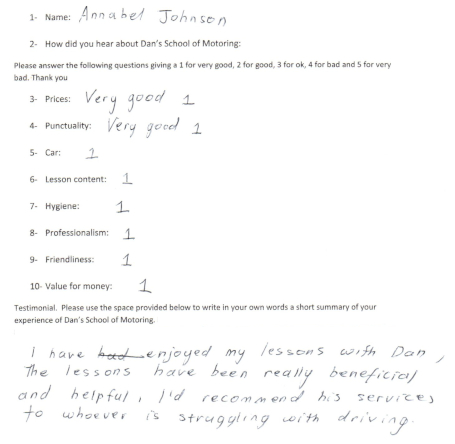 1- Name: Annabel Johnson
2- How did you hear about Dan's School of Motoring:
Please answer the following questions giving a 1 for very good, 2 for good, 3 for ok, 4 for bad and 5 for very
bad. Thank you
3- Prices: Very good 1
4- Punctuality: Very good 1
5- Car: 1
6- Lesson content: 1
7- Hygiene: 1
8- Professionalism: 1
9- Friendliness: 1
10- Value for money: 1
Testimonial. Please use the space provided below to write in your own words a short summary of your
experience of Dan's School of Motoring.
I have had enjoyed my lessons with Dan,
The lessons have been really beneficial
and helpful, I'd recommend his services
to whoever is struggling with driving.